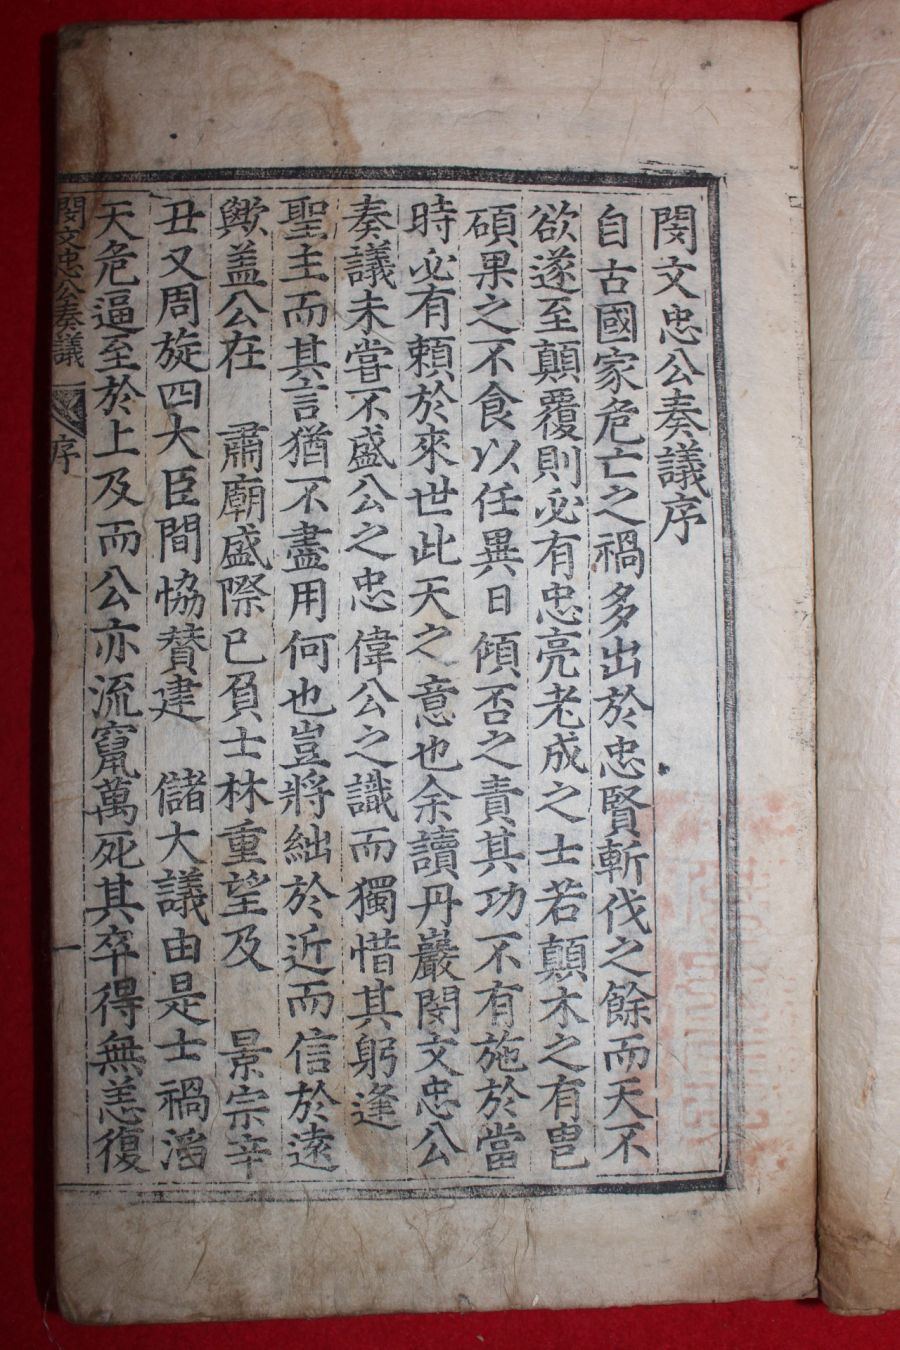 閔文忠公奏議序
自古國家危亡之禍多出於忠賢斬伐之餘而天不
欲遂至顛覆則必有忠亮老成之士若顛木之有甹
碩果之不食以任異日傾否之責其功不有施於當
時必有賴於來世此天之意也余讀丹巖閔文忠公
奏議未嘗不盛公之忠偉公之識而獨惜其躬逢
聖主而其言猶不盡用何也豈將絀於近而信於遠
歟盖公在 肅廟盛際已負士林重望及 景宗辛
丑又周旋四大臣間恊賛建 儲大議由是士禍滔
天危逼至於上及而公亦流竄萬死其卒得無恙復
閔文忠公奏議 序 一